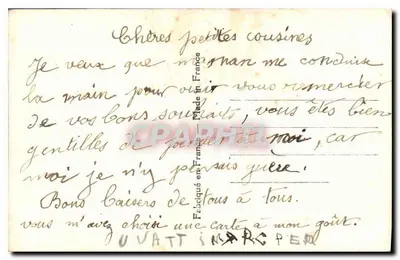 Chères petites cousines
Je veux que maman me conduise
la main pour vous remercier
de vos bons souhaits, vous êtes bien
gentilles de penser à moi, car
moi je n'y pensais guère.
Bons baisers de tous à tous.
vous m'avez choisi une carte à mon goût.
Fabriqué en France
Made in France